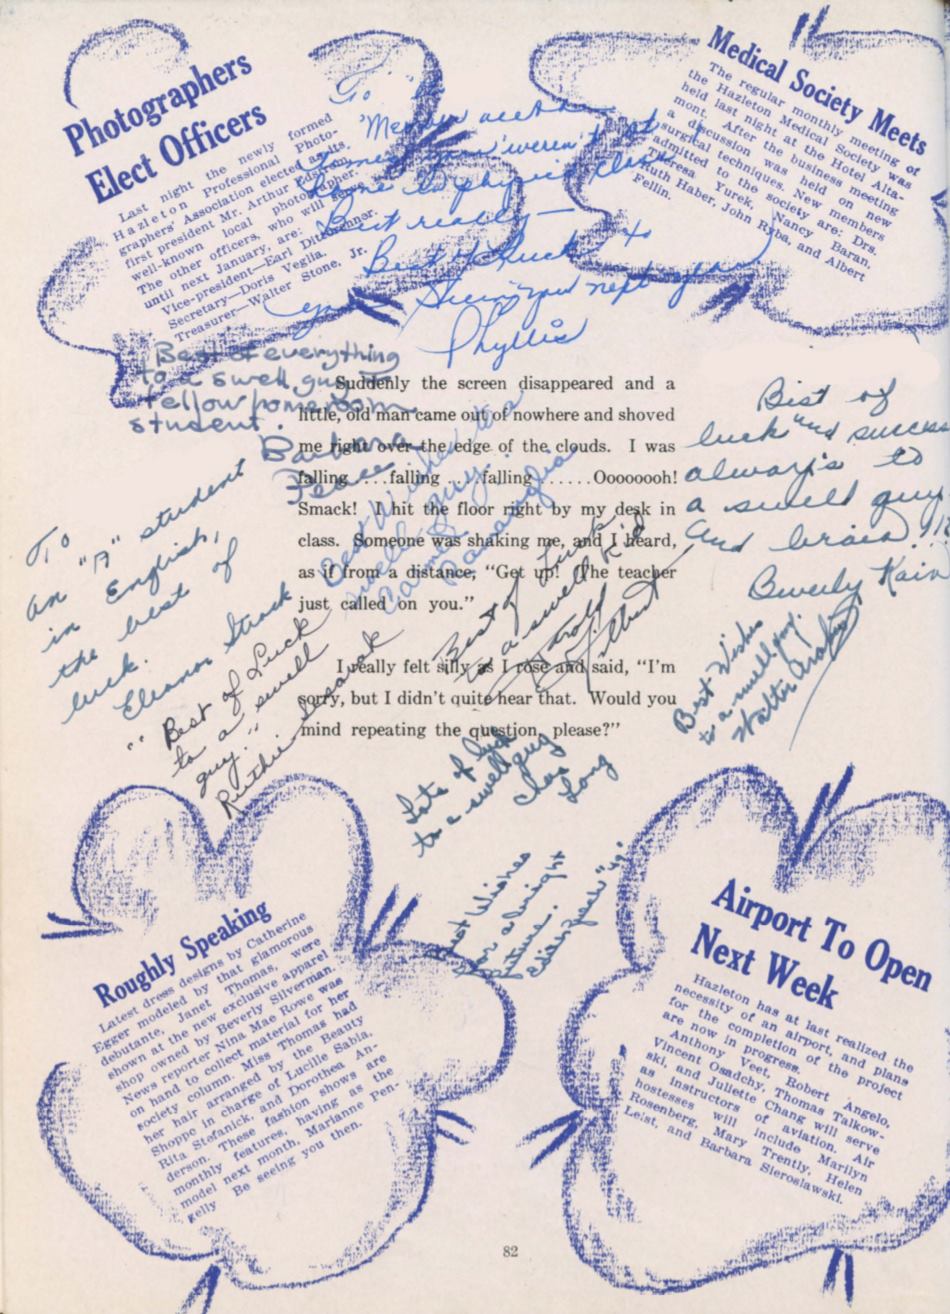 Photographers
Elect Officers
Last night the newly formed
Hazleton Professional Photo-
graphers' Association elected as its
first president Mr. Arthur
well-known local photographer.
The other officers, who will
until next January, are:
Vice-president—Earl
Secretary—Doris Veglia,
Treasurer—Walter Stone, Jr.
Medical Society Meets
The regular monthly meeting of
the Hazleton Medical Society was
held last night at the Hotel Alta-
mont. After the business meeting
a discussion was held on new
surgical techniques. New members
admitted to the society are: Drs.
Theresa Yurek, Nancy Baran,
Ruth Haber, John Ryba, and Albert
Fellin.
To
weren't
physics class
Best really—
Best of luck to
you next year
Phyllis
Best of everything
to a swell guy &
fellow homeroom
student.
Barbara
Peace
Suddenly the screen disappeared and a
little, old man came out of nowhere and shoved
me right over the edge of the clouds. I was
falling ...falling ...falling .....Oooooooh!
Smack! I hit the floor right by my desk in
class. Someone was shaking me, and I heard,
as if from a distance, "Get up! The teacher
just called on you."
I really felt silly as I rose and said, "I'm
sorry, but I didn't quite hear that. Would you
mind repeating the question, please?"
Best Wishes to a
swell guy.
Best of
luck and success
always to
a swell guy
and brain!!
Beverly Kain
To
an "A" student
in English,
the best of
luck.
Eleanor
"Best of Luck
to a swell
guy."
Ruthie
Best of Luck
to a swell kid
Harold
Best Wishes
to a swell guy.
Walter
Lots of luck
to a swell guy
Long
Best Wishes
for a bright
future.
"49"
Roughly Speaking
Latest dress designs by Catherine
Egger modeled by that glamorous
debutante, Janet Thomas, were
shown at the new exclusive apparel
shop owned by Beverly Silverman.
News reporter Nina Mae Rowe was
on hand to collect material for her
society column. Miss Thomas had
her hair arranged by the Beauty
Shoppe in charge of Lucille Sabia,
Rita Stefanick, and Dorothea An-
derson. These fashion shows are
monthly features, having as the
model next month, Marianne Pen-
kelly
Be seeing you then.
Airport To Open
Next Week
Hazleton has at last realized the
necessity of an airport, and plans
for the completion of the project
are now in progress.
Anthony Veet, Robert Angelo,
Vincent Osadchy, Thomas Talkow-
ski, and Juliette Chang will serve
as instructors of aviation. Air
hostesses will include Marilyn
Rosenberg, Mary Trently, Helen
Leist, and Barbara Sieroslawski.
82